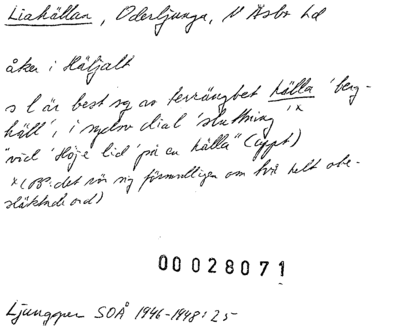 Liahällan, Oderljunga, N Åsbo hd
åker i Häljalt
s l är best sg av terrängbet hälla 'berg-
häll', i sydsv dial 'sluttning'x
"vid 'Höje lid' på en hälla" (uppt)
x(OBS: det rör sig förmodligen om två helt obe-
släktade ord)
00028071
Ljunggren SOÅ 1946-1948:25